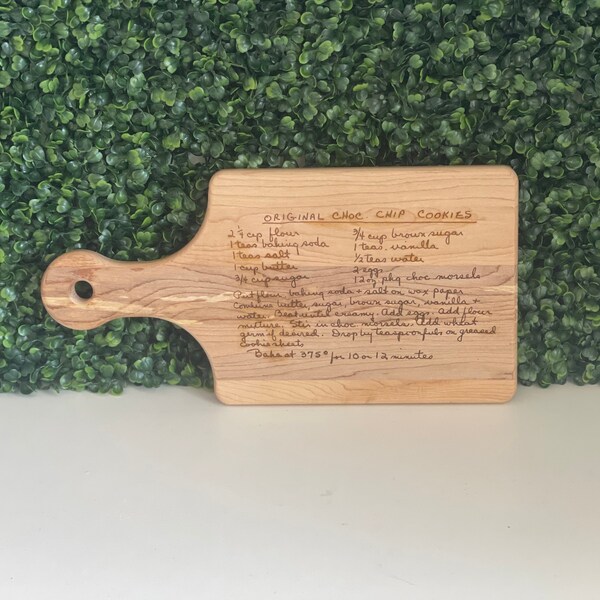 ORIGINAL CHOC CHIP COOKIES
2 1/4 cup flour
1 teas baking soda
1 teas salt
1 cup butter
3/4 cup sugar
3/4 cup brown sugar
1 teas. vanilla
1/2 teas water
2 eggs
12 oz pkg choc morsels
Put flour, baking soda + salt on wax paper
Combine butter, sugar, brown sugar, vanilla +
water. Beat until creamy. Add eggs. Add flour
mixture. Stir in choc morsels. Add wheat
germ if desired. Drop by teaspoonfuls on greased
cookie sheets
Bake at 375° for 10 or 12 minutes